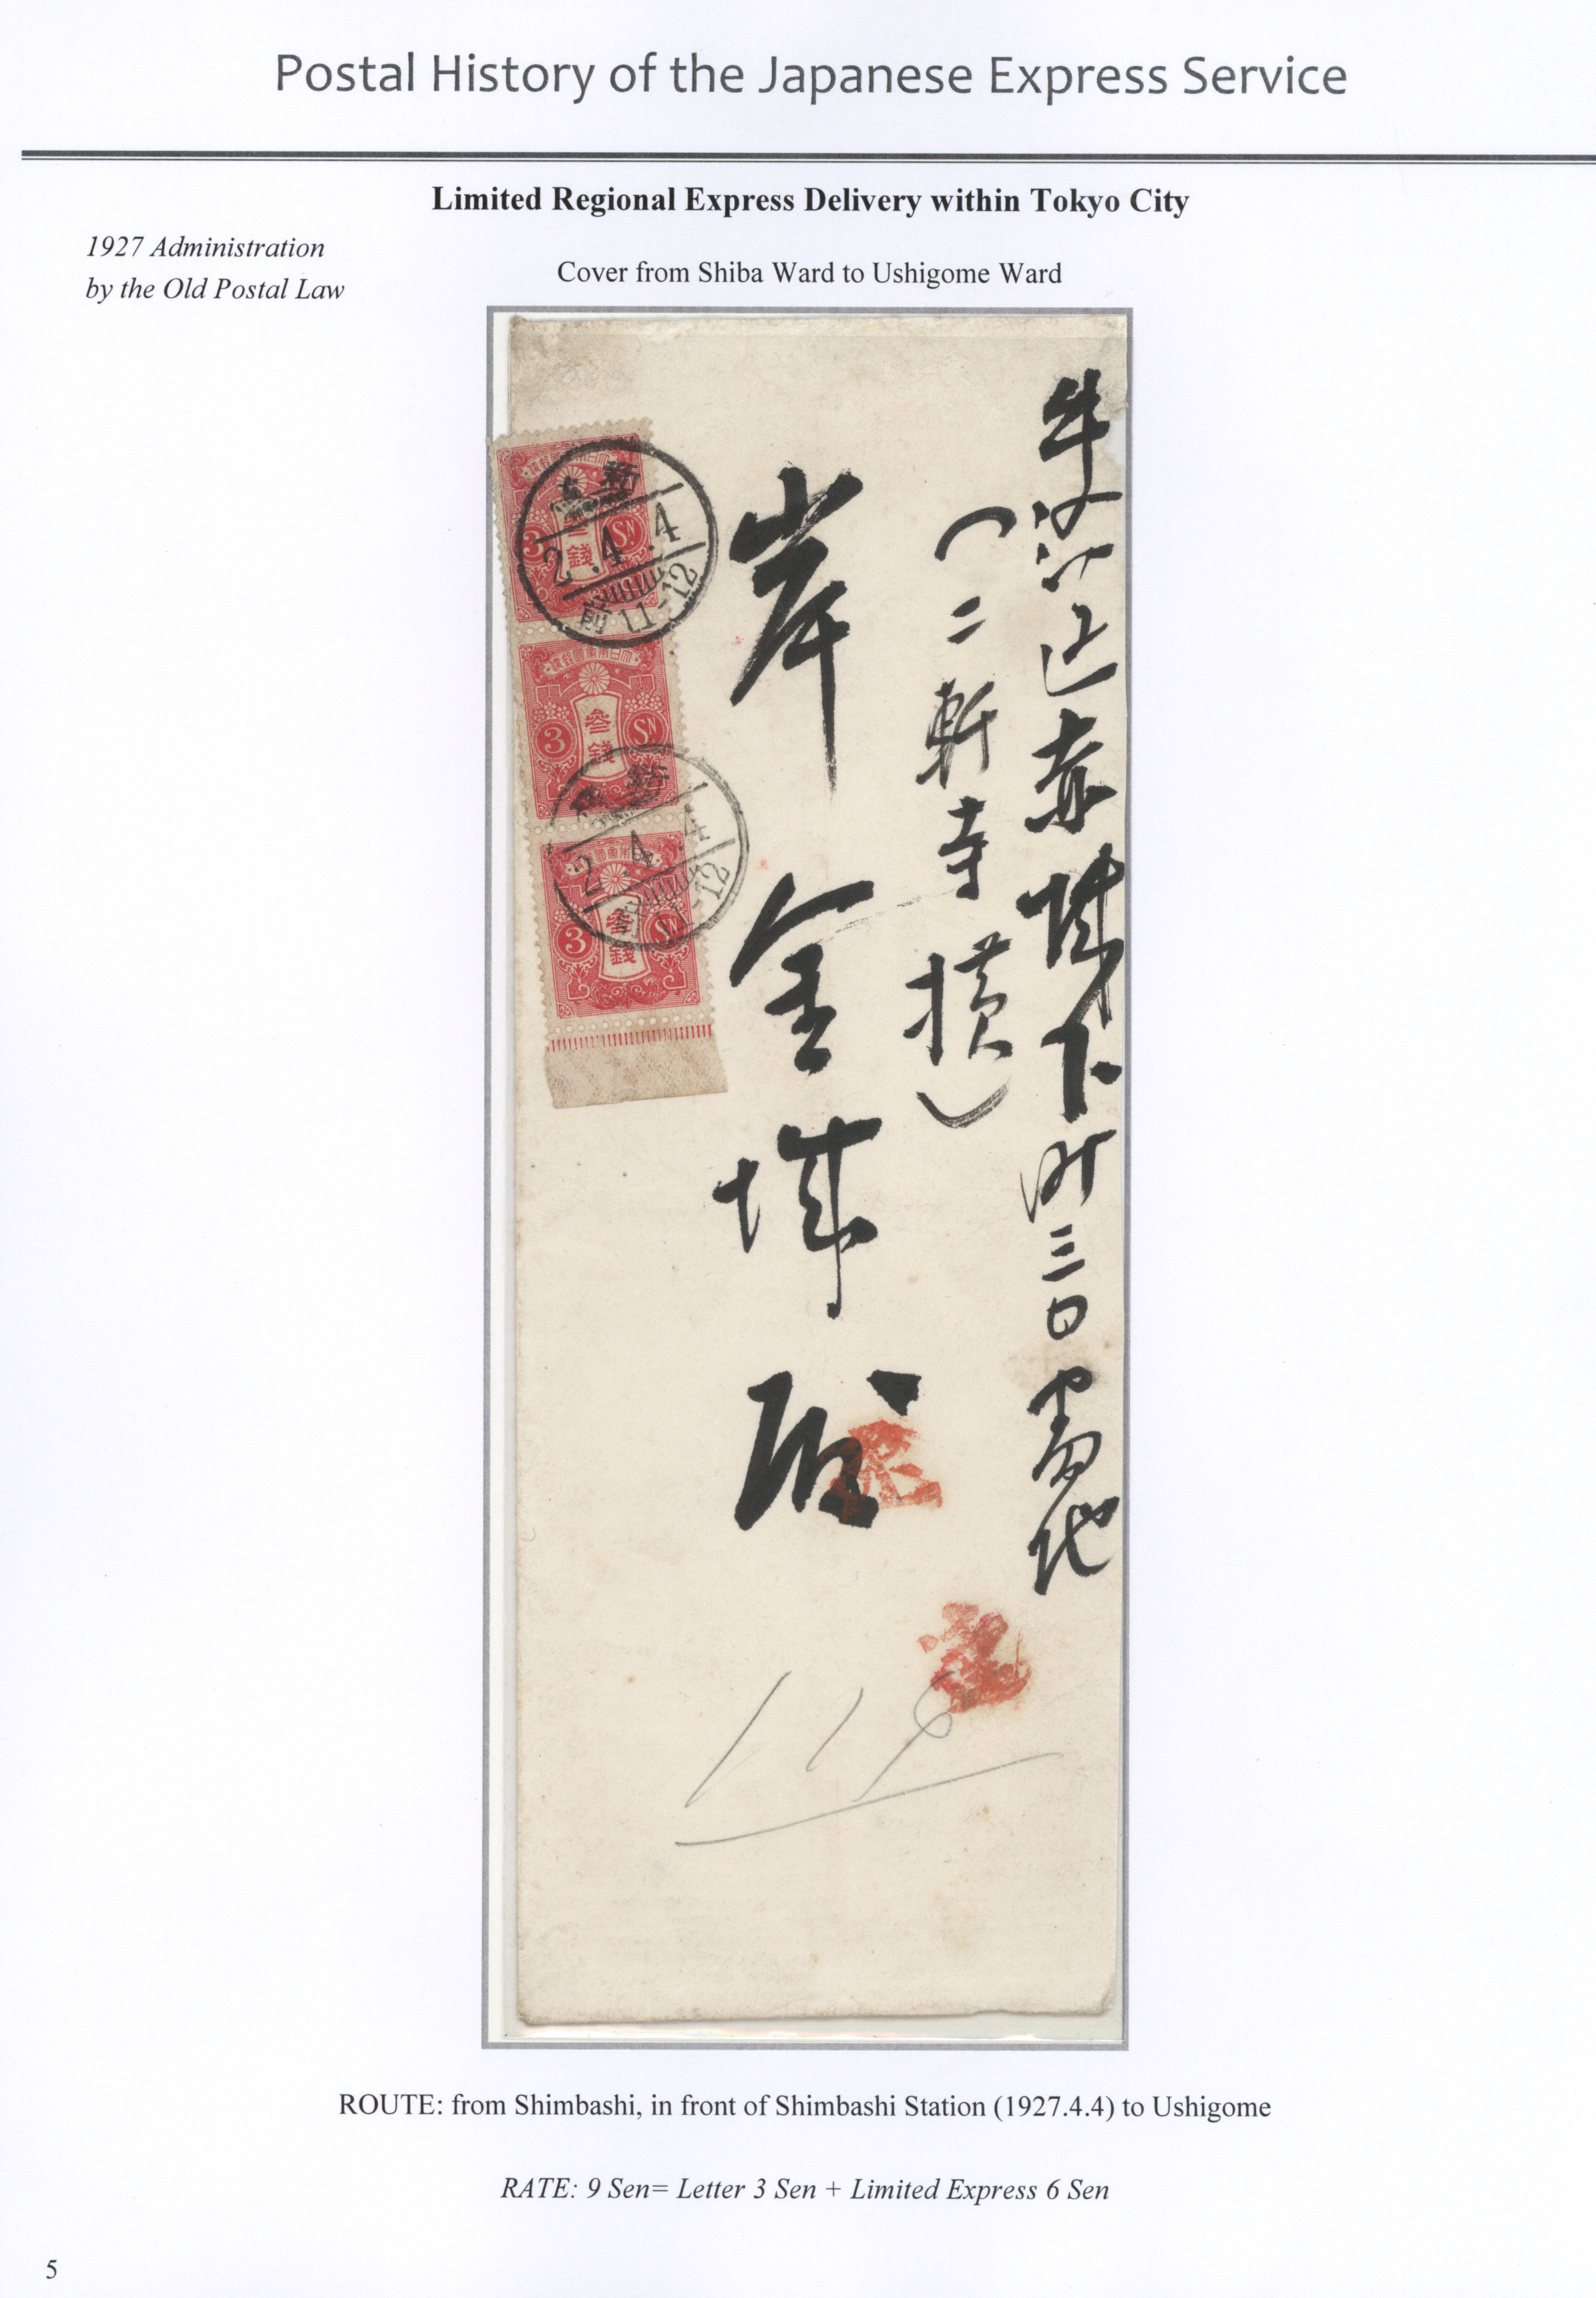 Postal History of the Japanese Express Service
Limited Regional Express Delivery within Tokyo City
1927 Administration
by the Old Postal Law
Cover from Shiba Ward to Ushigome Ward
牛込区赤城下町三〇番地
(二軒寺横)
岸金城殿
大日本帝國郵便
3 参銭 SN
新
2.4.4
前11-12
大日本帝國郵便
3 参銭 SN
新
2.4.4
前11-12
3 参銭 SN
ROUTE: from Shimbashi, in front of Shimbashi Station (1927.4.4) to Ushigome
RATE: 9 Sen= Letter 3 Sen + Limited Express 6 Sen
5